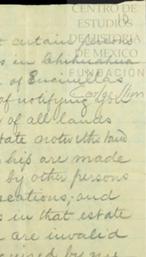 CENTRO DE
ESTUDIOS
DE HISTORIA
DE MEXICO
FUNDACION
Carlos Slim
10
t certain persons
s in Chihuahua
of Encinillas
of notifying you
of all lands
tate
ship are made
by other persons
cations, and
s in that estate
are invalid
by my